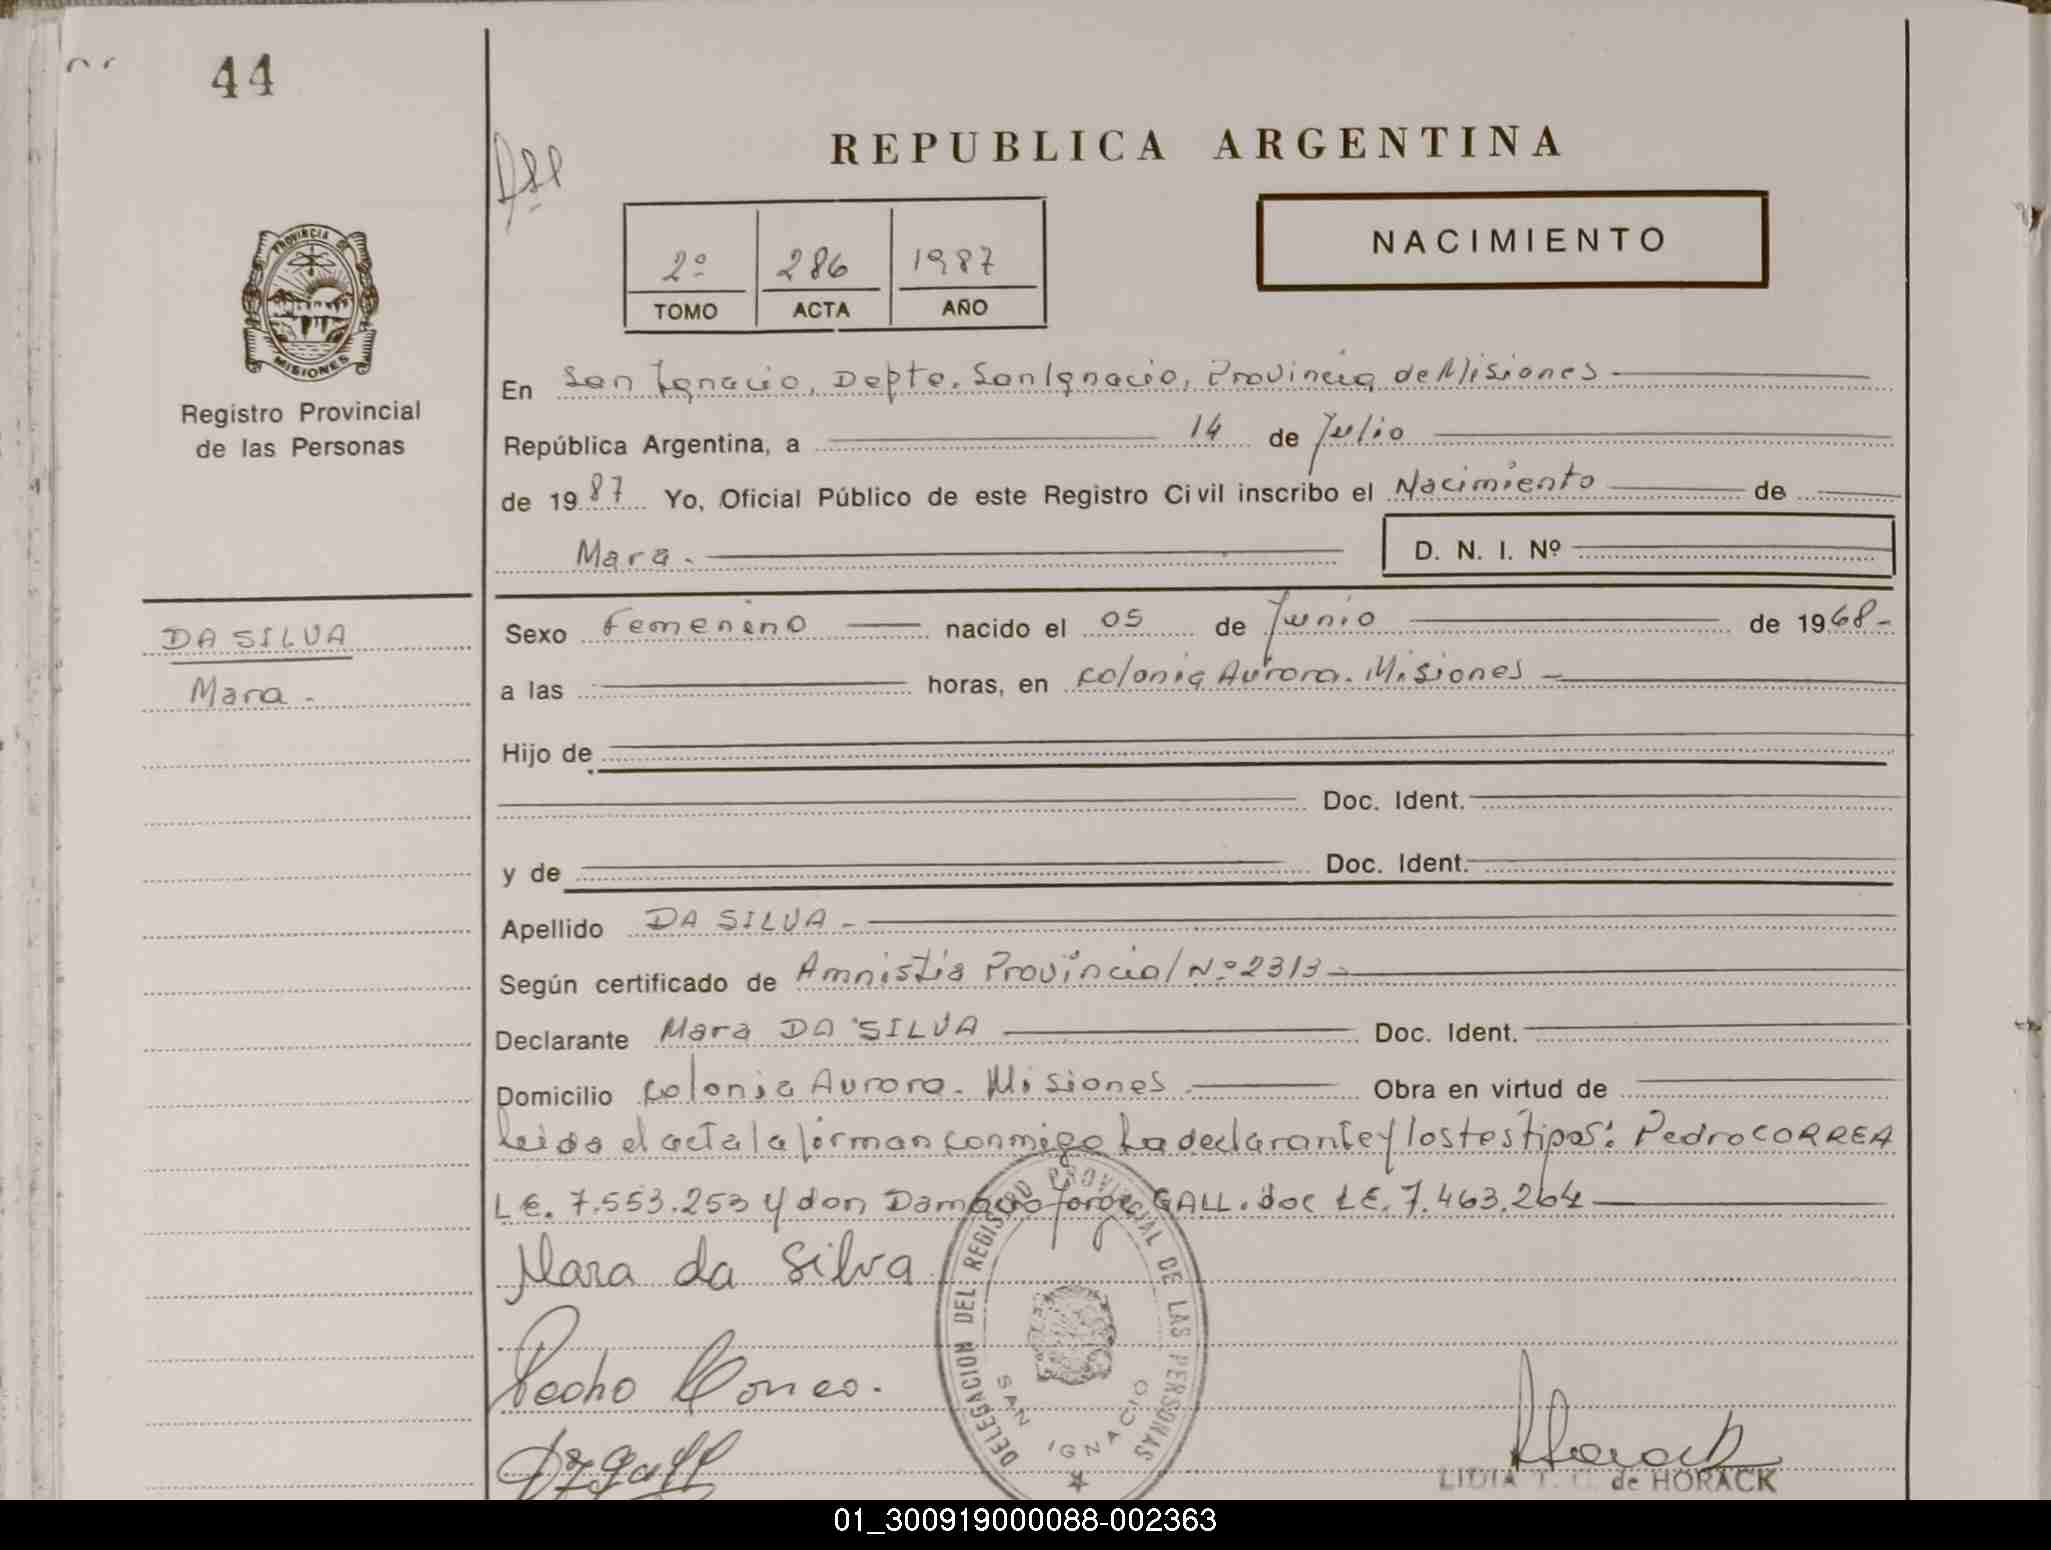 44
REPUBLICA ARGENTINA
NACIMIENTO
2º 286 1987
TOMO ACTA AÑO
PROVINCIA DE
MISIONES
Registro Provincial
de las Personas
En San Ignacio, Depto. San Ignacio, Provincia de Misiones
República Argentina, a 14 de Julio
de 1987 Yo, Oficial Público de este Registro Civil inscribo el Nacimiento de
Mara. D. N. I. Nº
DA SILVA
Mara.
Sexo Femenino nacido el 05 de Junio de 1968-
a las horas, en Colonia Aurora. Misiones
Hijo de
Doc. Ident.
y de Doc. Ident.
Apellido DA SILVA
Según certificado de Amnistia Provincial Nº 2313
Declarante Mara DA SILVA Doc. Ident.
Domicilio Colonia Aurora. Misiones Obra en virtud de
leida el acta la firman conmigo La declarante y los testigos: Pedro CORREA
L E. 7.553.253 y don Damacio Jorge GALL. doc L E. 7.463.264
Mara da Silva
DELEGACION DEL REGISTRO PROVINCIAL DE LAS PERSONAS
SAN IGNACIO
LIDIA de HORACK
01_300919000088-002363